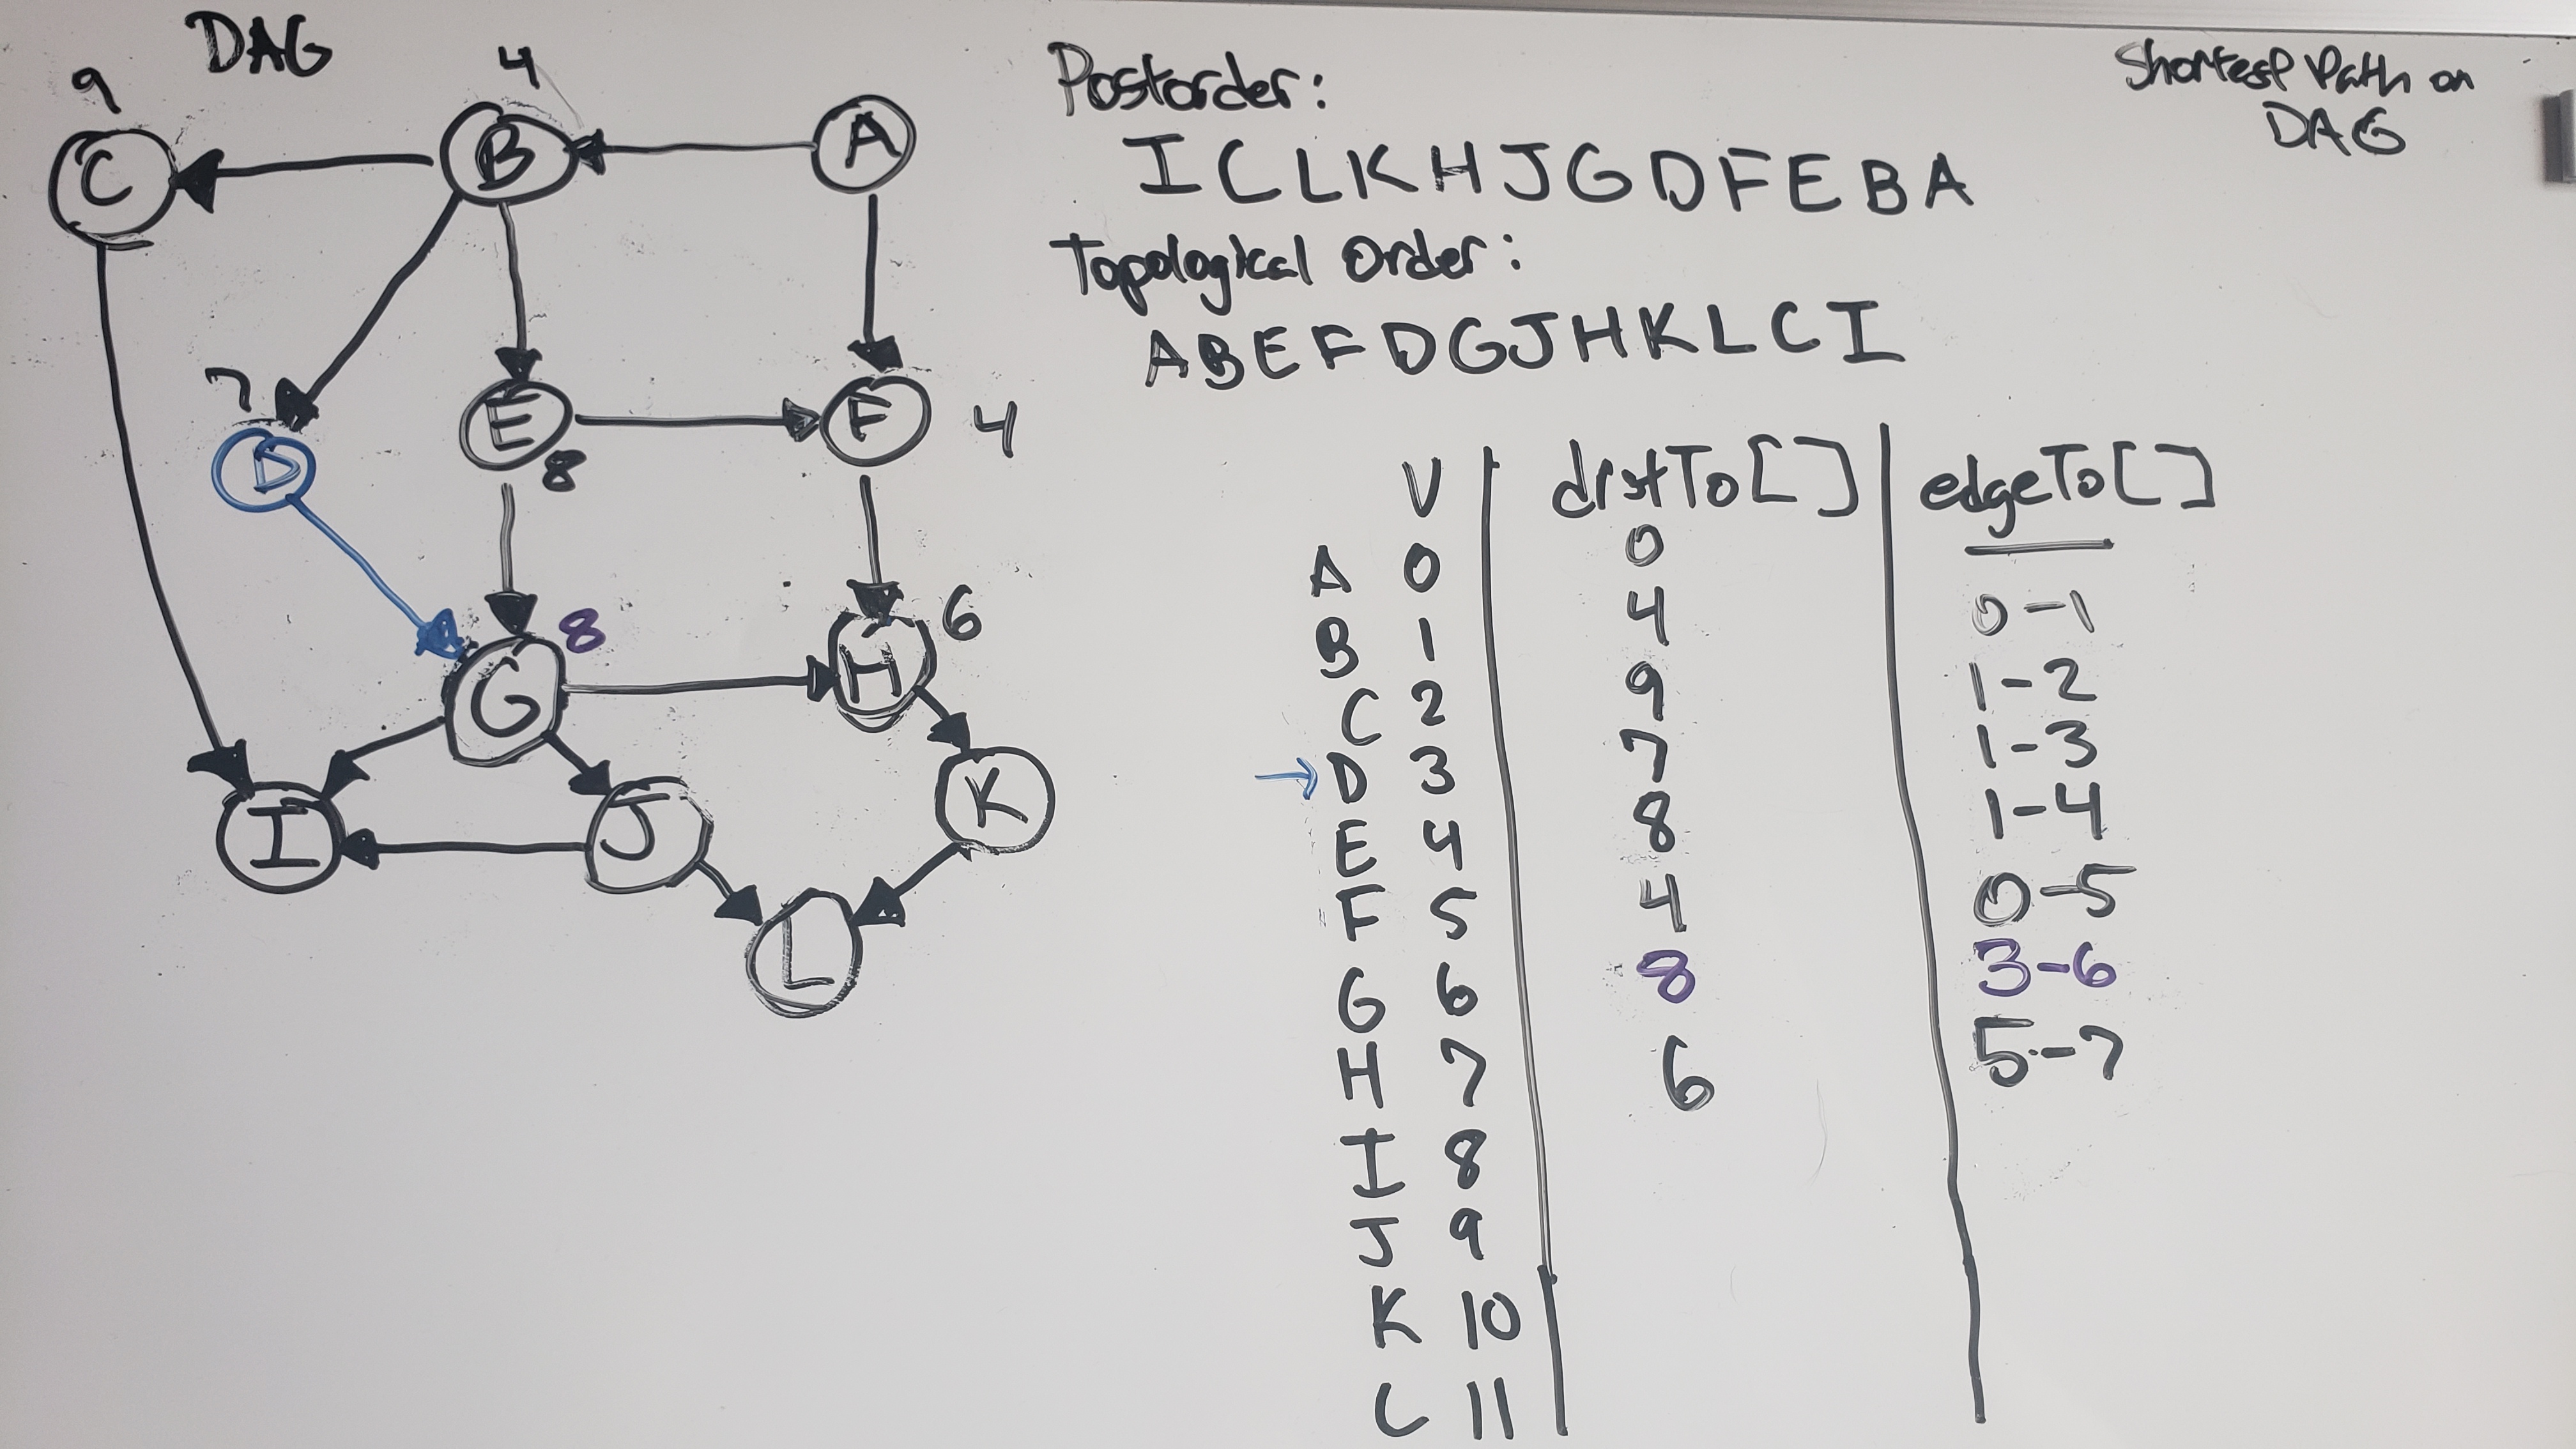 DAG
9
4
C
B
A
7
D
E
8
F
4
G
8
H
6
I
J
K
L
Postorder:
I C L K H J G D F E B A
Topological Order:
A B E F D G J H K L C I
Shortest Path on
DAG
V distTo[] edgeTo[]
A 0 0 —
B 1 4 0-1
C 2 9 1-2
→ D 3 7 1-3
E 4 8 1-4
F 5 4 0-5
G 6 8 3-6
H 7 6 5-7
I 8
J 9
K 10
L 11